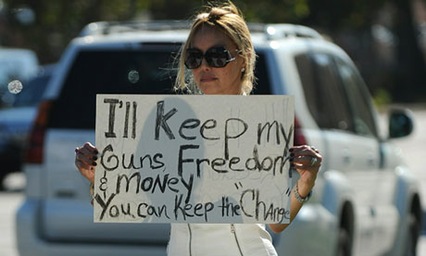 I'll Keep my
Guns, Freedom
& moNey
You can Keep the "ChAnge"